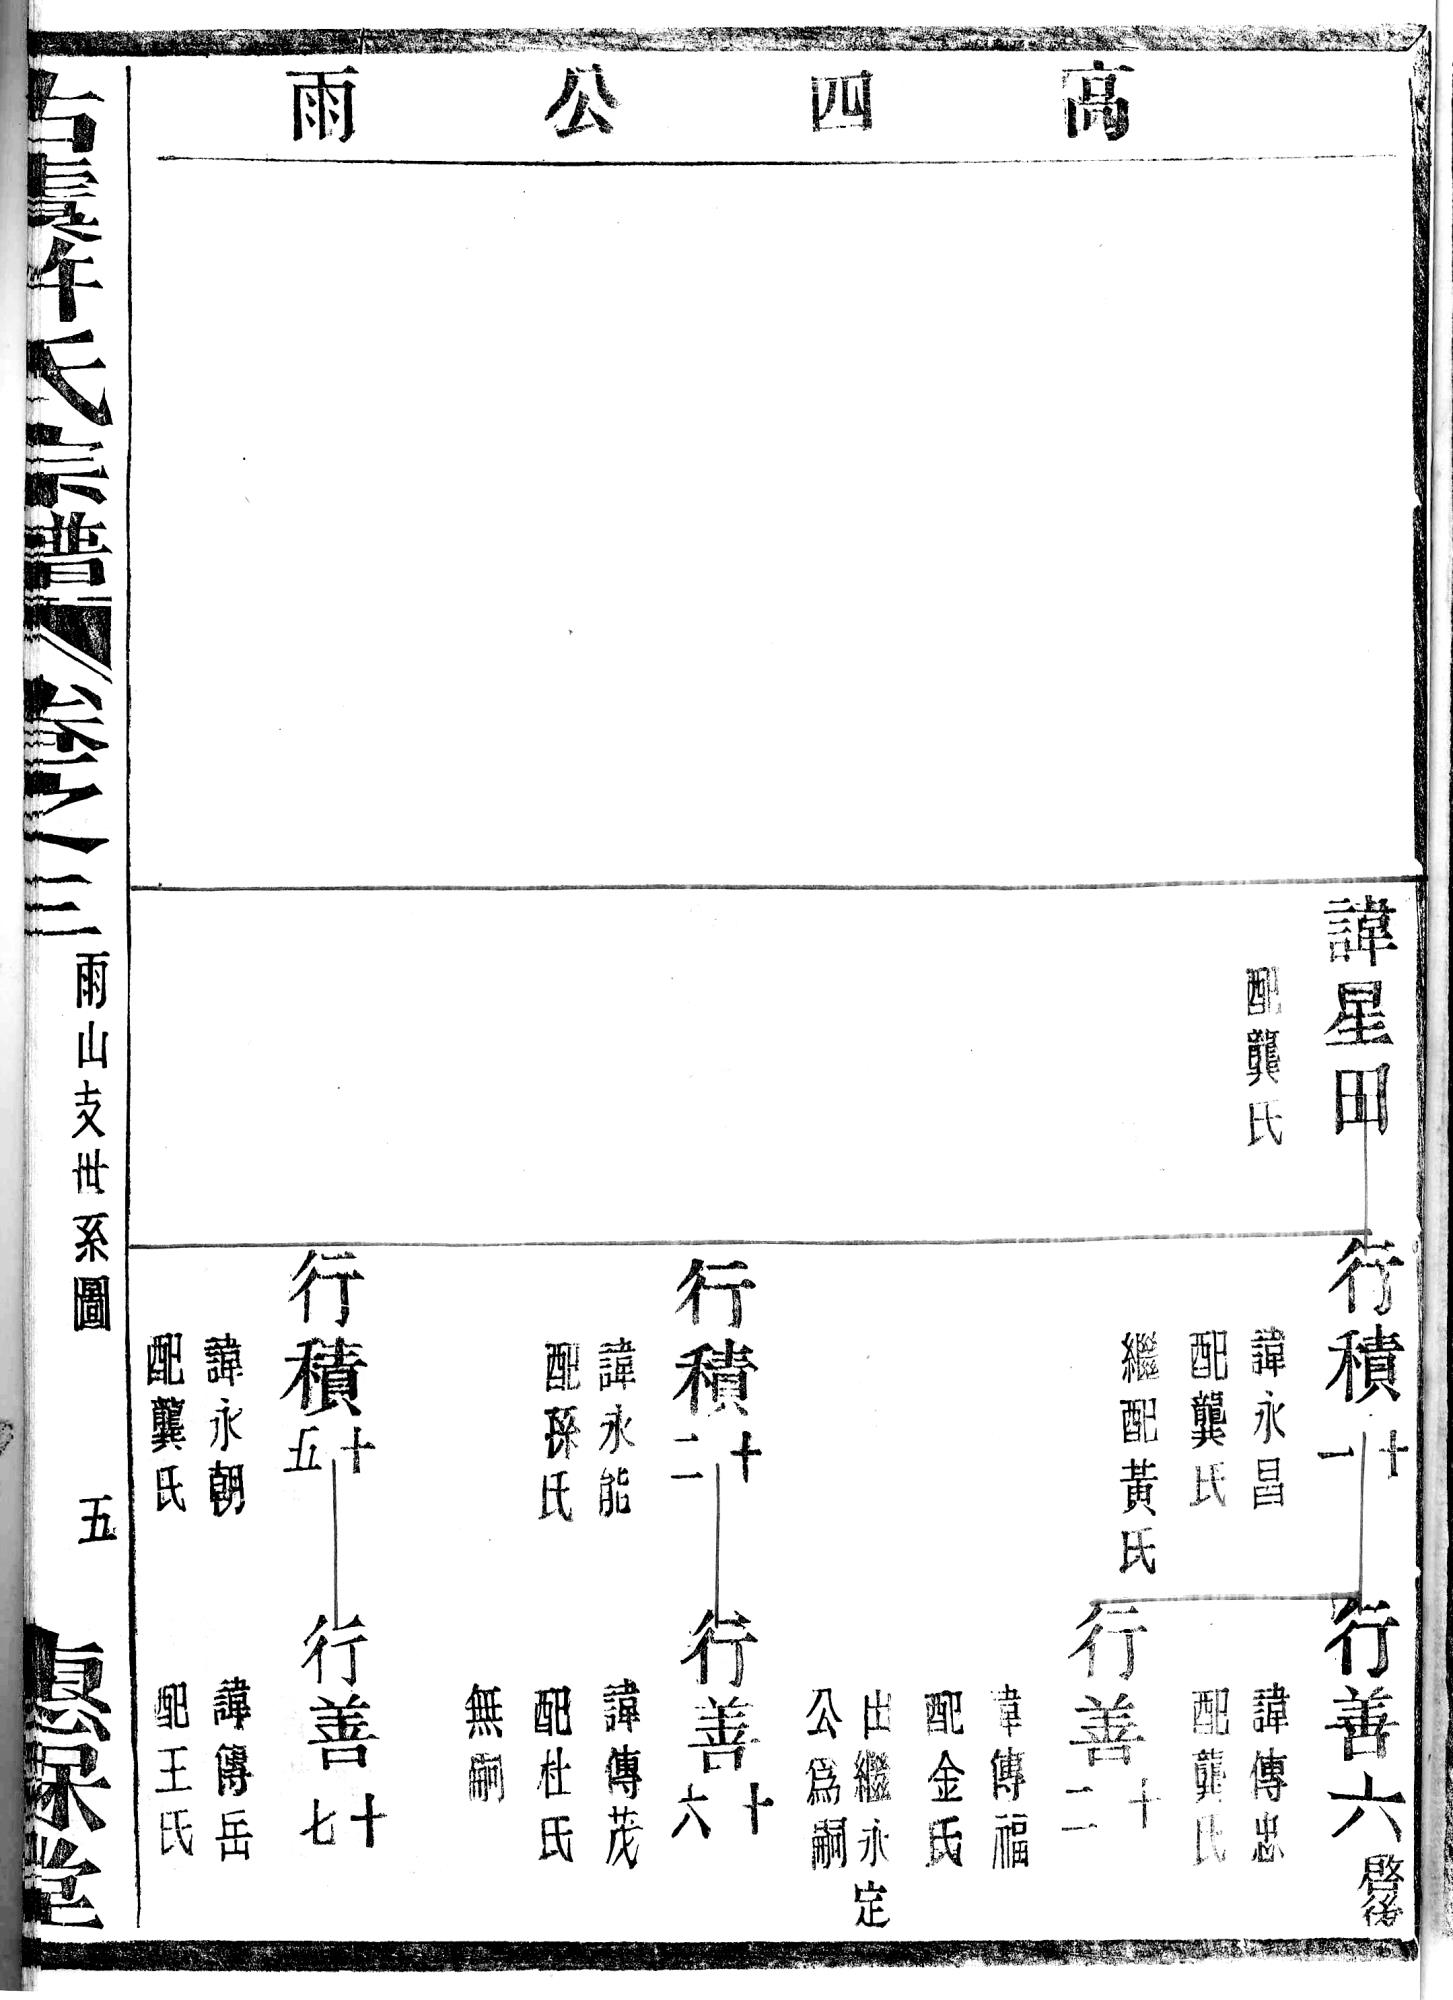 高四公雨
諱星田
配龔氏
行積十一
諱永昌
配龔氏
繼配黃氏
行積十二
諱永能
配孫氏
行積十五
諱永朝
配龔氏
行善六
啓後
諱傳忠
配龔氏
行善十二
諱傳福
配金氏
出繼永定
公爲嗣
行善十六
諱傳茂
配杜氏
無嗣
行善十七
諱傳岳
配王氏
古虞許氏宗譜 卷之三
雨山支世系圖
五
堂